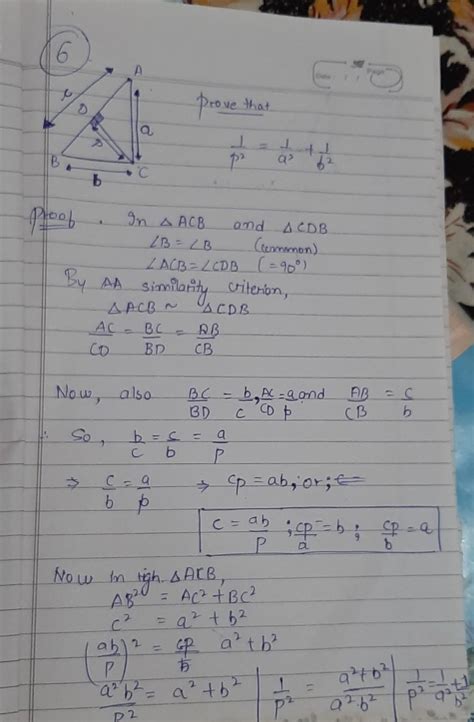 6
A
Page
Date
r
D
a
p
B
b
C
Prove that
1/p² = 1/a² + 1/b²
Proof. In △ACB and △CDB
∠B = ∠B (common)
∠ACB = ∠CDB (=90°)
By AA similarity criterion,
△ACB ~ △CDB
AC/CD = BC/BD = AB/CB
Now, also BC/BD = b/c, AC/CD = a/p and AB/CB = c/b
∴ So, b/c = c/b = a/p
⇒ c/b = a/p ⇒ cp = ab, or;
c = ab/p ; cp/a = b ; cp/b = a
Now In righ △ACB,
AB² = AC² + BC²
c² = a² + b²
(ab/p)² = a² + b²
a²b²/p² = a² + b² | 1/p² = a²+b²/a²b² | 1/p² = 1/a² + 1/b²